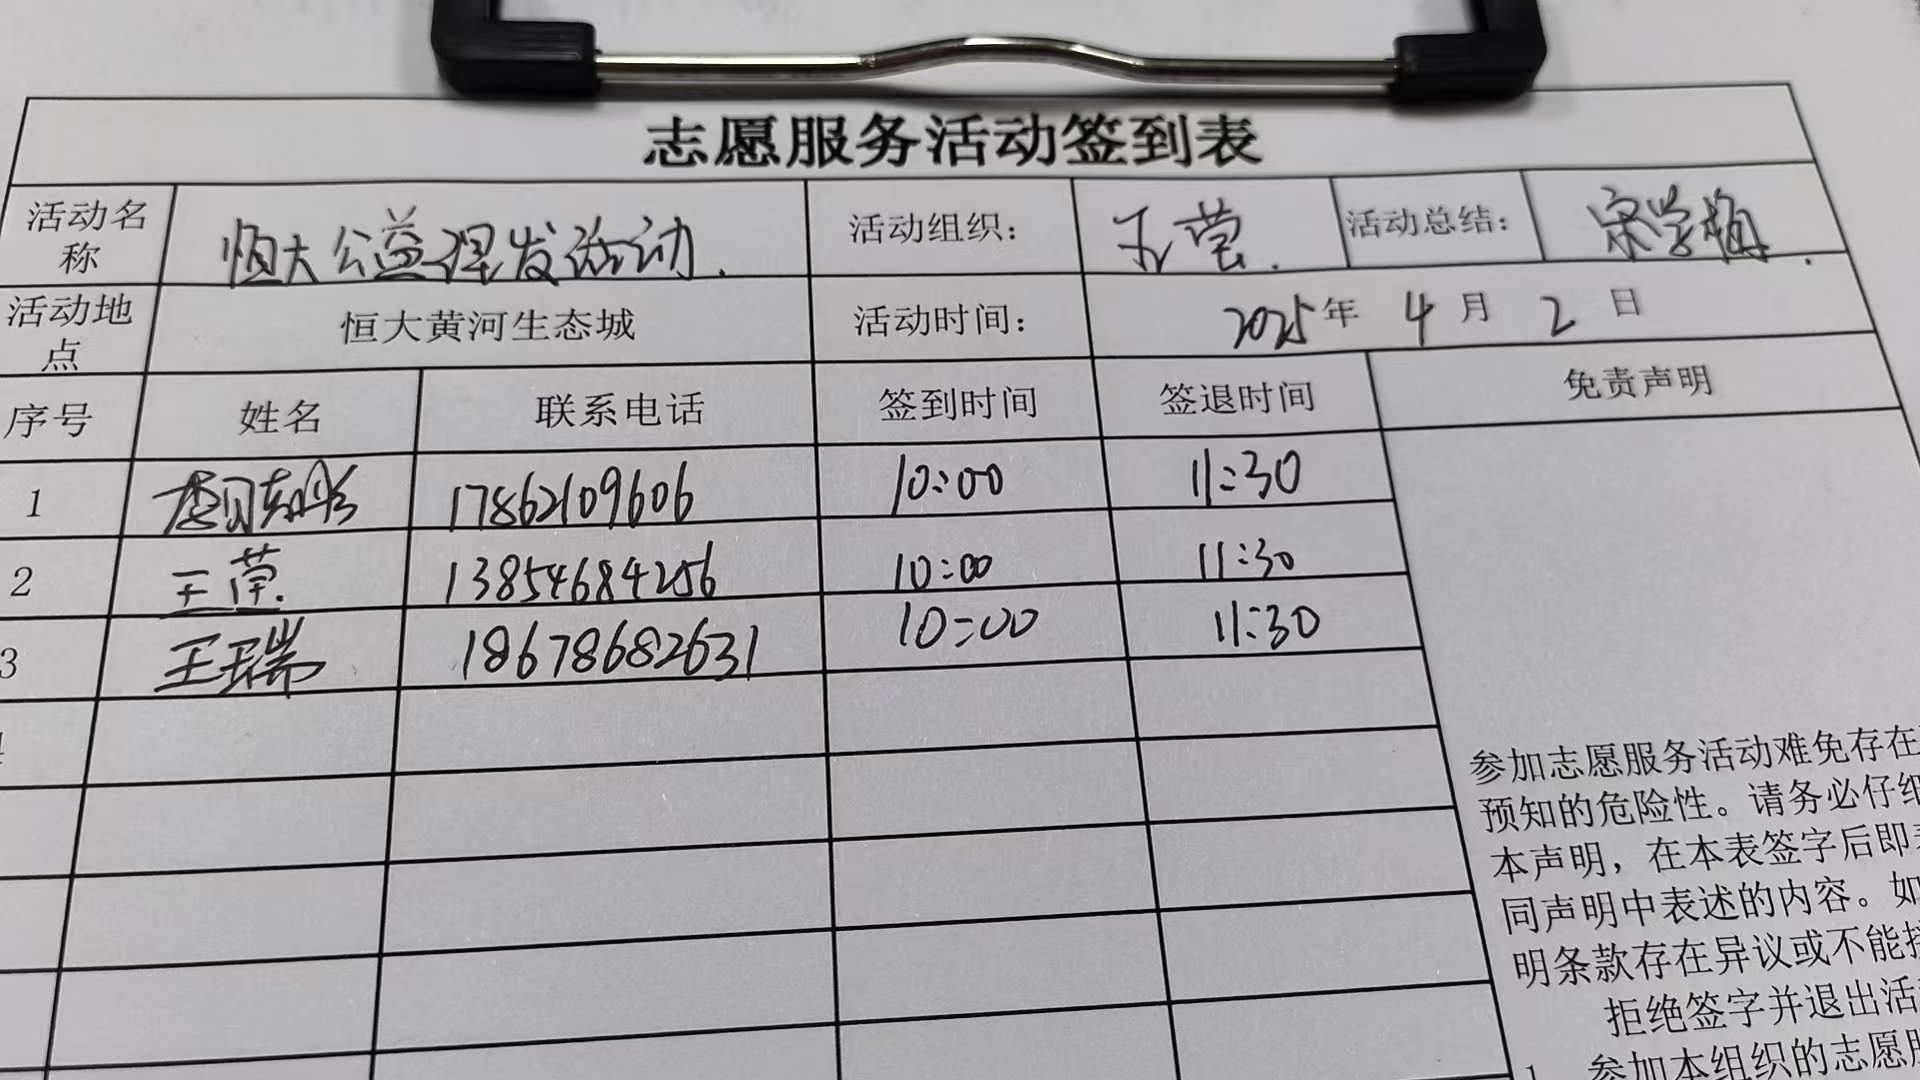 志愿服务活动签到表
活动名称 恒大公益理发活动. 活动组织: 王莹. 活动总结: 宋学梅.
活动地点 恒大黄河生态城 活动时间: 2025年 4月 2日
序号 姓名 联系电话 签到时间 签退时间 免责声明
1 17862109606 10:00 11:30
2 王 13854684256 10:00 11:30
3 王瑞 18678682631 10:00 11:30
4
参加志愿服务活动难免存在
预知的危险性。请务必仔细
本声明，在本表签字后即
同声明中表述的内容。如
明条款存在异议或不能接
拒绝签字并退出活
1 参加本组织的志愿服